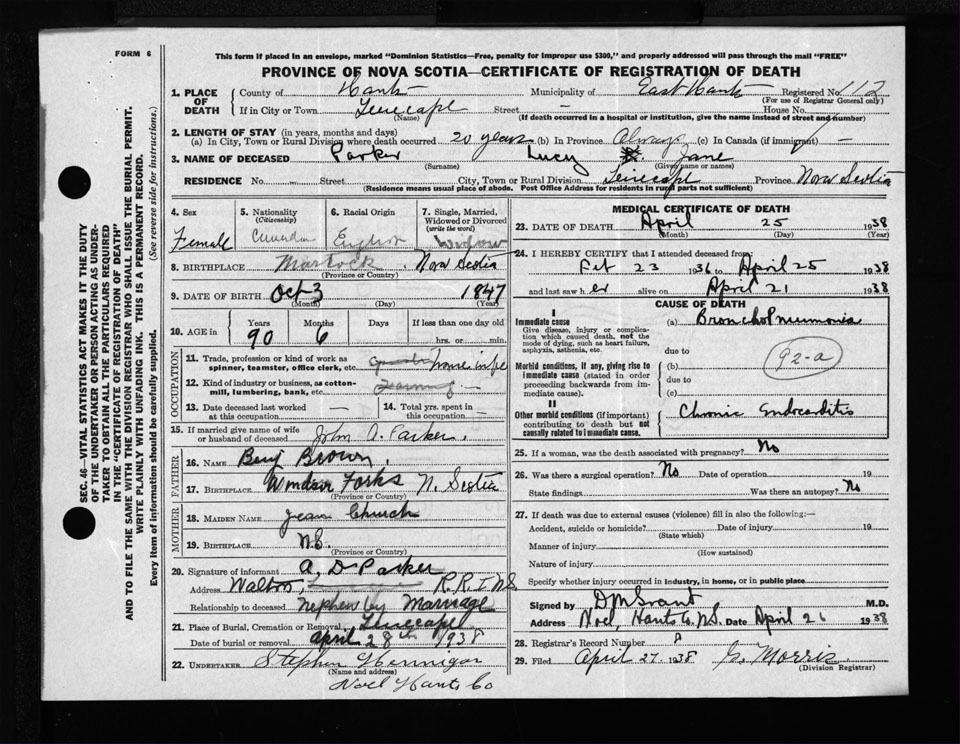 FORM 6
This form if placed in an envelope, marked "Dominion Statistics—Free, penalty for improper use $300," and properly addressed will pass through the mail "FREE"
PROVINCE OF NOVA SCOTIA—CERTIFICATE OF REGISTRATION OF DEATH
1. PLACE OF DEATH County of Hants Municipality of East Hants Registered No. 112
(For use of Registrar General only)
If in City or Town Tenecape Street — House No.
(Name) (If death occurred in a hospital or institution, give the name instead of street and number)
2. LENGTH OF STAY (in years, months and days)
(a) In City, Town or Rural Division where death occurred 20 years (b) In Province Always (c) In Canada (if immigrant) —
3. NAME OF DECEASED Parker Lucy Jane
(Surname) (Given name or names)
RESIDENCE No. — Street City, Town or Rural Division Tenecape Province Nova Scotia
(Residence means usual place of abode. Post Office Address for residents in rural parts not sufficient)
4. Sex Female
5. Nationality (Citizenship) Canadian
6. Racial Origin English
7. Single, Married, Widowed or Divorced (write the word) Widow
8. BIRTHPLACE Martock Nova Scotia
(Province or Country)
9. DATE OF BIRTH Oct 3 1847
(Month) (Day) (Year)
10. AGE in Years Months Days If less than one day old
90 6 hrs. or min.
OCCUPATION
11. Trade, profession or kind of work as spinner, teamster, office clerk, etc. housewife
12. Kind of industry or business, as cotton-mill, lumbering, bank, etc. —
13. Date deceased last worked at this occupation —
14. Total yrs. spent in this occupation —
15. If married give name of wife or husband of deceased John A. Parker.
FATHER
16. NAME Benj Brown.
17. BIRTHPLACE Windsor Forks N. Scotia
(Province or Country)
MOTHER
18. MAIDEN NAME Jean Church
19. BIRTHPLACE N.S.
(Province or Country)
20. Signature of informant A. D Parker
Address Walton, R.R.1 N.S.
Relationship to deceased nephew by Marriage
21. Place of Burial, Cremation or Removal Tenecape
Date of burial or removal April 28th 1938
22. UNDERTAKER Stephen Hennigar
(Name and address)
Noel Hants Co
MEDICAL CERTIFICATE OF DEATH
23. DATE OF DEATH April 25 1938
(Month) (Day) (Year)
24. I HEREBY CERTIFY that I attended deceased from
Feb 23 1936 to April 25 1938
and last saw her alive on April 21 1938
CAUSE OF DEATH
I
Immediate cause (a) Bronchopneumonia
Give disease, injury or complication which caused death, not the mode of dying, such as heart failure, asphyxia, asthenia, etc.
due to
92-a
Morbid conditions, if any, giving rise to immediate cause (stated in order proceeding backwards from immediate cause). (b)
due to
(c)
II
Other morbid conditions (if important) contributing to death but not causally related to immediate cause. Chronic Endocarditis
25. If a woman, was the death associated with pregnancy? No
26. Was there a surgical operation? No Date of operation 19
State findings Was there an autopsy? No
27. If death was due to external causes (violence) fill in also the following:—
Accident, suicide or homicide? Date of injury 19
(State which)
Manner of injury
(How sustained)
Nature of injury
Specify whether injury occurred in industry, in home, or in public place
Signed by D M Grant M.D.
Address Noel, Hants Co. N.S. Date April 26 1938
28. Registrar's Record Number
29. Filed April 27 1938 G. Morris
(Division Registrar)
SEC. 46—VITAL STATISTICS ACT MAKES IT THE DUTY
OF THE UNDERTAKER OR PERSON ACTING AS UNDERTAKER
TO OBTAIN ALL THE PARTICULARS REQUIRED
IN THE "CERTIFICATE OF REGISTRATION OF DEATH"
AND TO FILE THE SAME WITH THE DIVISION REGISTRAR WHO SHALL ISSUE THE BURIAL PERMIT.
WRITE PLAINLY WITH UNFADING INK. THIS IS A PERMANENT RECORD.
Every item of information should be carefully supplied. (See reverse side for instructions.)